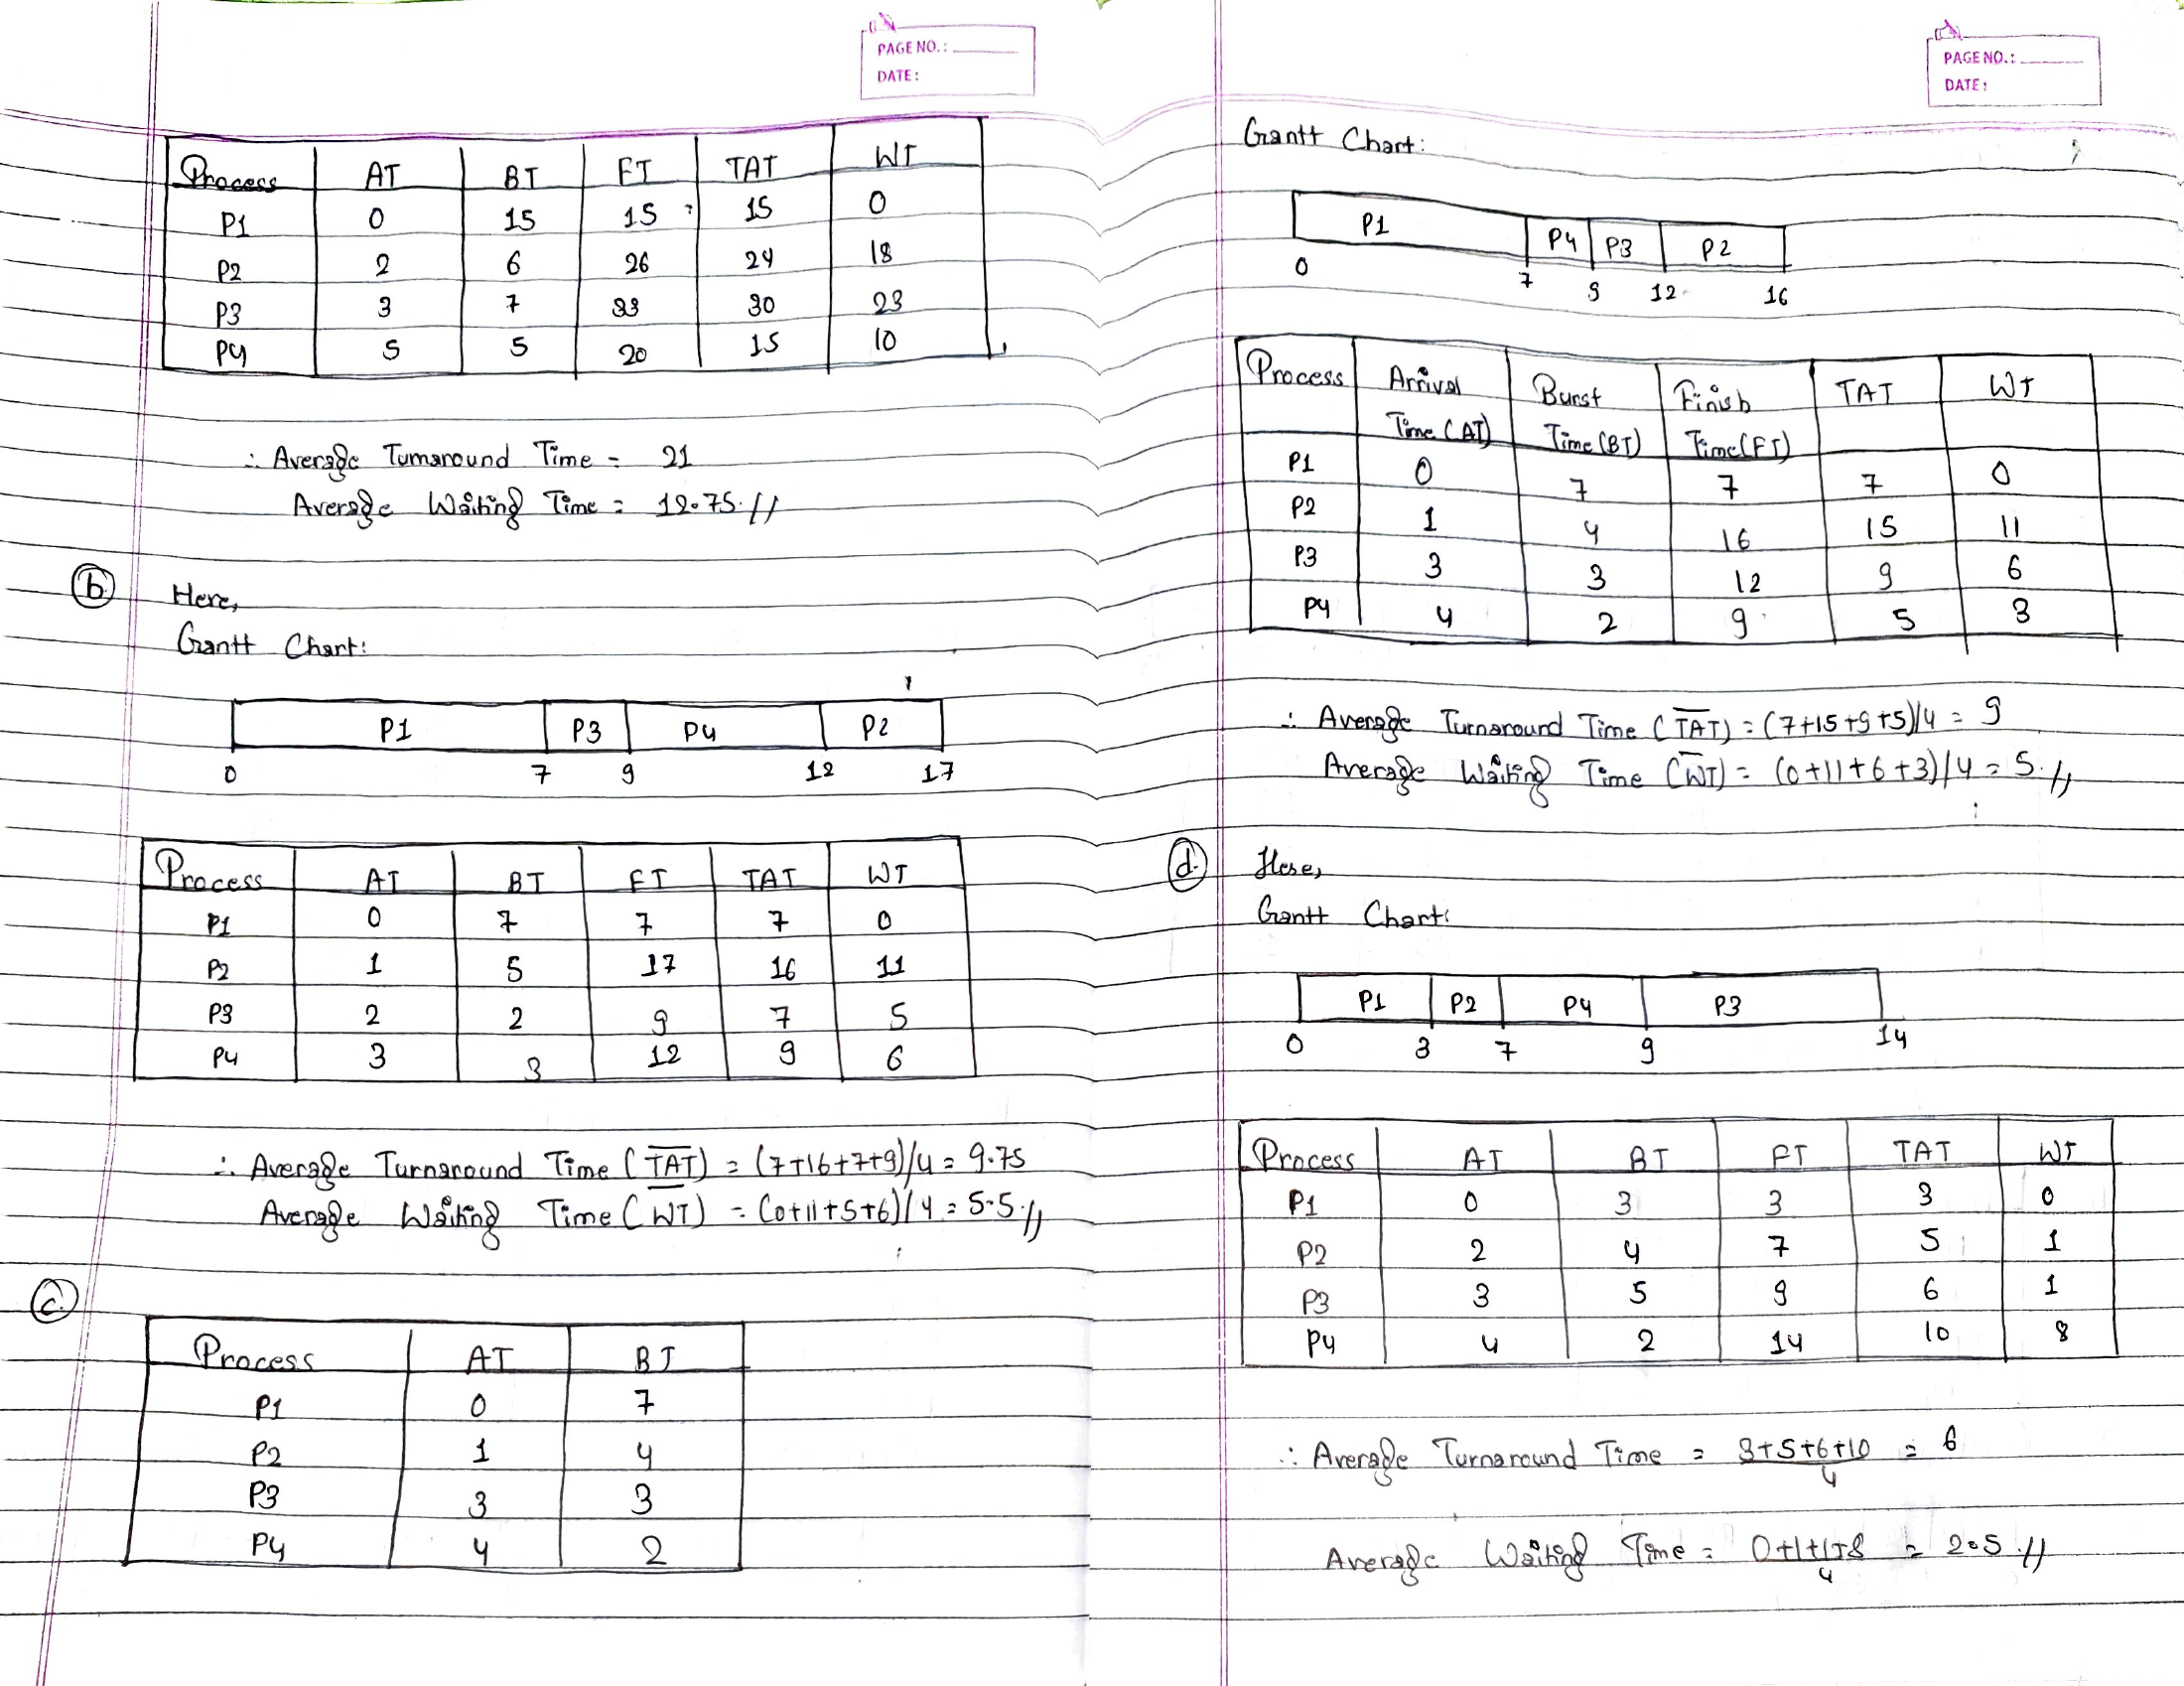 PAGE NO.:
DATE:
Process AT BT FT TAT WT
P1 0 15 15 15 0
P2 2 6 26 24 18
P3 3 7 33 30 23
P4 5 5 20 15 10
∴ Average Turnaround Time = 21
Average Waiting Time = 12.75 //
(b) Here,
Gantt Chart:
P1 P3 P4 P2
0 7 9 12 17
Process AT BT FT TAT WT
P1 0 7 7 7 0
P2 1 5 17 16 11
P3 2 2 9 7 5
P4 3 3 12 9 6
∴ Average Turnaround Time (TAT) = (7+16+7+9)/4 = 9.75
Average Waiting Time (WT) = (0+11+5+6)/4 = 5.5 //
(c.)
Process AT BT
P1 0 7
P2 1 4
P3 3 3
P4 4 2
PAGE NO.:
DATE:
Gantt Chart:
P1 P4 P3 P2
0 7 9 12 16
Process Arrival Burst Finish TAT WT
Time (AT) Time (BT) Time (FT)
P1 0 7 7 7 0
P2 1 4 16 15 11
P3 3 3 12 9 6
P4 4 2 9 5 3
∴ Average Turnaround Time (TAT) = (7+15+9+5)/4 = 9
Average Waiting Time (WT) = (0+11+6+3)/4 = 5 //
(d.) Here,
Gantt Chart:
P1 P2 P4 P3
0 3 7 9 14
Process AT BT FT TAT WT
P1 0 3 3 3 0
P2 2 4 7 5 1
P3 3 5 9 6 1
P4 4 2 14 10 8
∴ Average Turnaround Time = 3+5+6+10 = 6
4
Average Waiting Time = 0+1+1+8 = 2.5 //
4